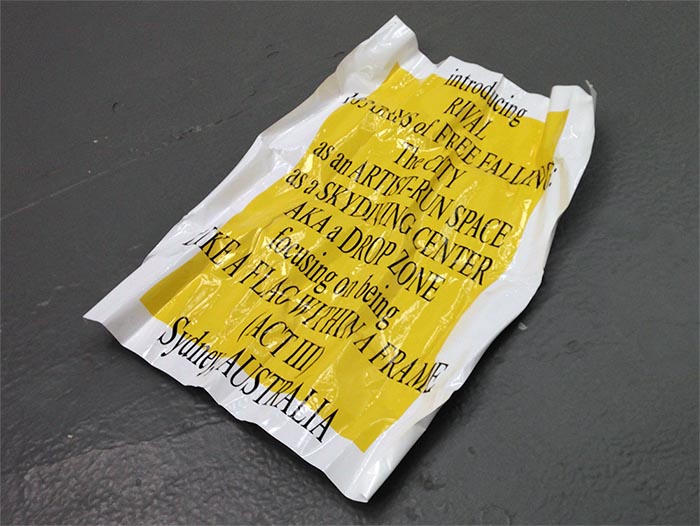 introducing
RIVAL
DAYS of FREE FALLING:
The CITY
as an ARTIST-RUN SPACE
as a SKYDIVING CENTER
AKA a DROP ZONE
focusing on being
LIKE A FLAG WITHIN A FRAME
(ACT III)
Sydney AUSTRALIA